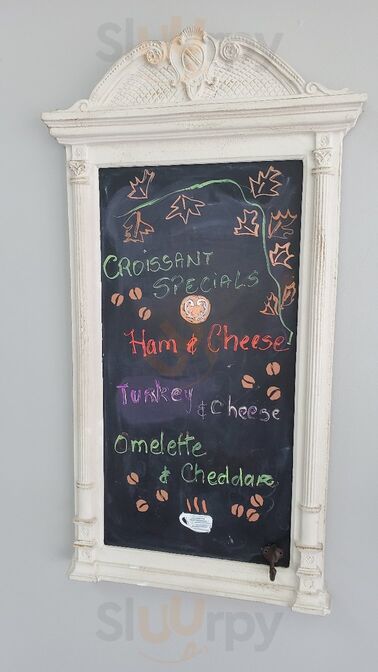 Sluurpy
CROISSANT
SPECIALS
Ham & Cheese
Turkey
& Cheese
Omelette
& Cheddar
Sluurpy